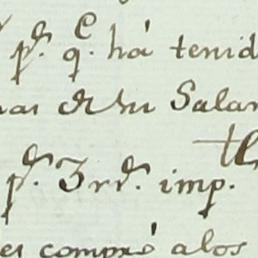 p.r q.e há tenid
nas de su Salar
p.r 3 rr.s imp.tl
es compré alos